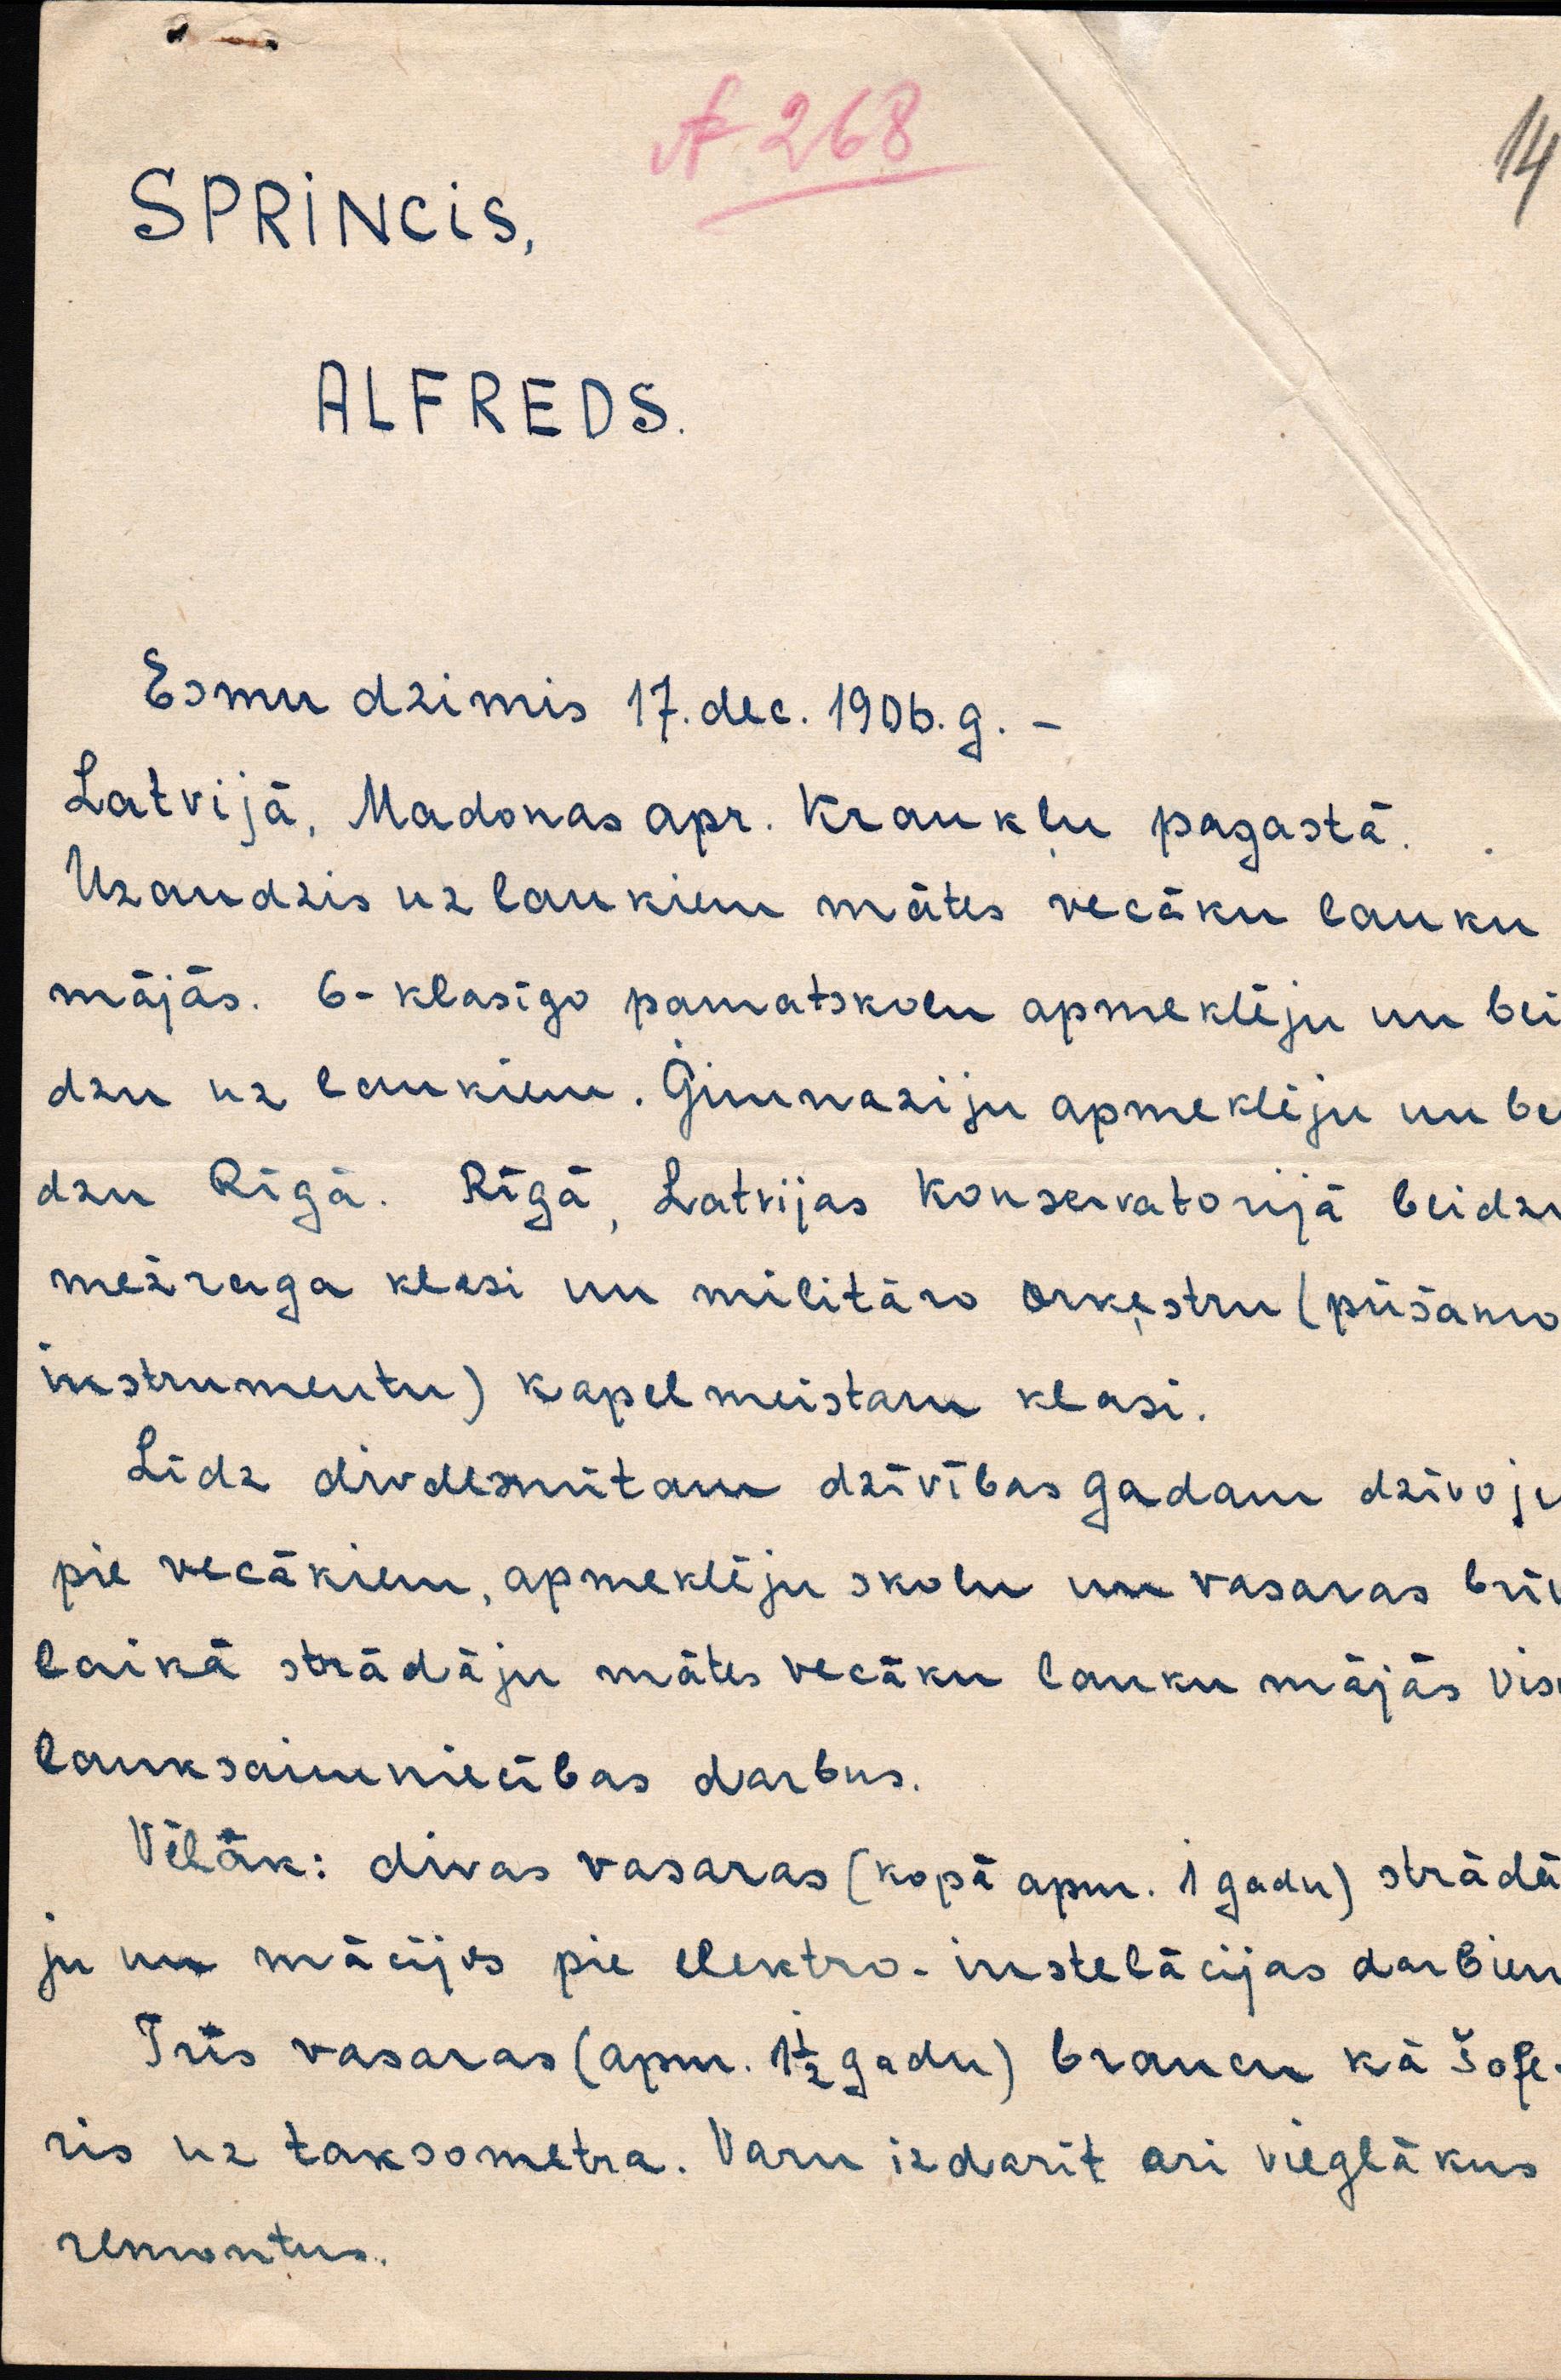 № 268
14
SPRINCIS,
ALFREDS.
Esmu dzimis 17. dec. 1906. g. –
Latvijā, Madonas apr. Kraukļu pagastā.
Uzaudzis uz laukiem mātes vecāku lauku
mājās. 6-klasīgo pamatskolu apmeklēju un bei
dzu uz laukiem. Ģimnaziju apmeklēju un be
dzu Rīgā. Rīgā, Latvijas Konservatorijā beidzu
mežraga klasi un militāro orķestru (pūšamo
instrumentu) kapelmeistaru klasi.
Līdz divdesmitam dzīvības gadam dzīvoju
pie vecākiem, apmeklēju skolu un vasaras brīv
laikā strādāju mātes vecāku lauku mājās vis
lauksaimniecības darbus.
Vēlāk: divas vasaras (kopā apm. 1 gadu) strādā
ju un mācījos pie elektro-instelācijas darbiem
Trīs vasaras (apm. 1½ gadu) braucu kā šofe-
ris uz taksometra. Varu izdarīt ari vieglākus
remontus.